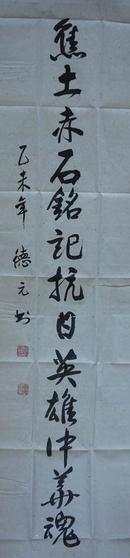 焦土赤石銘記抗日英雄中華魂
乙未年 德元书